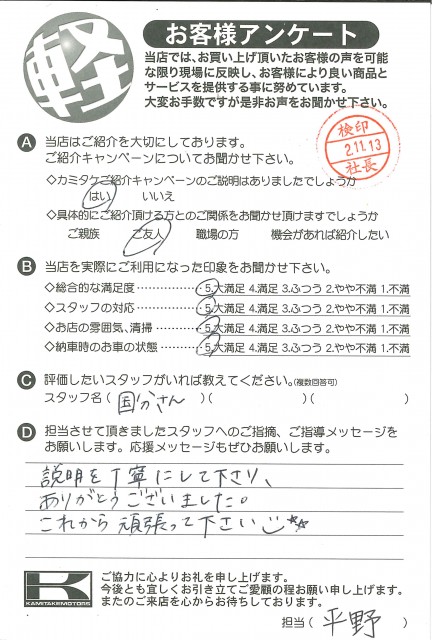 軽
お客様アンケート
当店では、お買い上げ頂いたお客様の声を可能
な限り現場に反映し、お客様により良い商品と
サービスを提供する事に努めています。
大変お手数ですが是非お声をお聞かせ下さい。
検印
2.11.13
社長
A 当店はご紹介を大切にしております。
ご紹介キャンペーンについてお聞かせ下さい。
◇カミタケご紹介キャンペーンのご説明はありましたでしょうか
はい いいえ
◇具体的にご紹介頂ける方とのご関係をお聞かせ頂けますでしょうか
ご親族 ご友人 職場の方 機会があれば紹介したい
B 当店を実際にご利用になった印象をお聞かせ下さい。
◇総合的な満足度 ‥‥‥‥‥‥ 5.大満足 4.満足 3.ふつう 2.やや不満 1.不満
◇スタッフの対応 ‥‥‥‥‥‥ 5.大満足 4.満足 3.ふつう 2.やや不満 1.不満
◇お店の雰囲気、清掃 ‥‥‥‥ 5.大満足 4.満足 3.ふつう 2.やや不満 1.不満
◇納車時のお車の状態 ‥‥‥‥ 5.大満足 4.満足 3.ふつう 2.やや不満 1.不満
C 評価したいスタッフがいれば教えてください。(複数回答可)
スタッフ名 ( さん )( )( )
D 担当させて頂きましたスタッフへのご指摘、ご指導メッセージを
お願いします。応援メッセージもぜひお願いします。
説明を丁寧にして下さり、
ありがとうございました。
これから頑張って下さい
K
KAMITAKEMOTORS
ご協力に心よりお礼を申し上げます。
今後とも宜しくお引き立てご愛顧の程お願い申し上げます。
またのご来店を心からお待ちしております。
担当 ( 平野 )